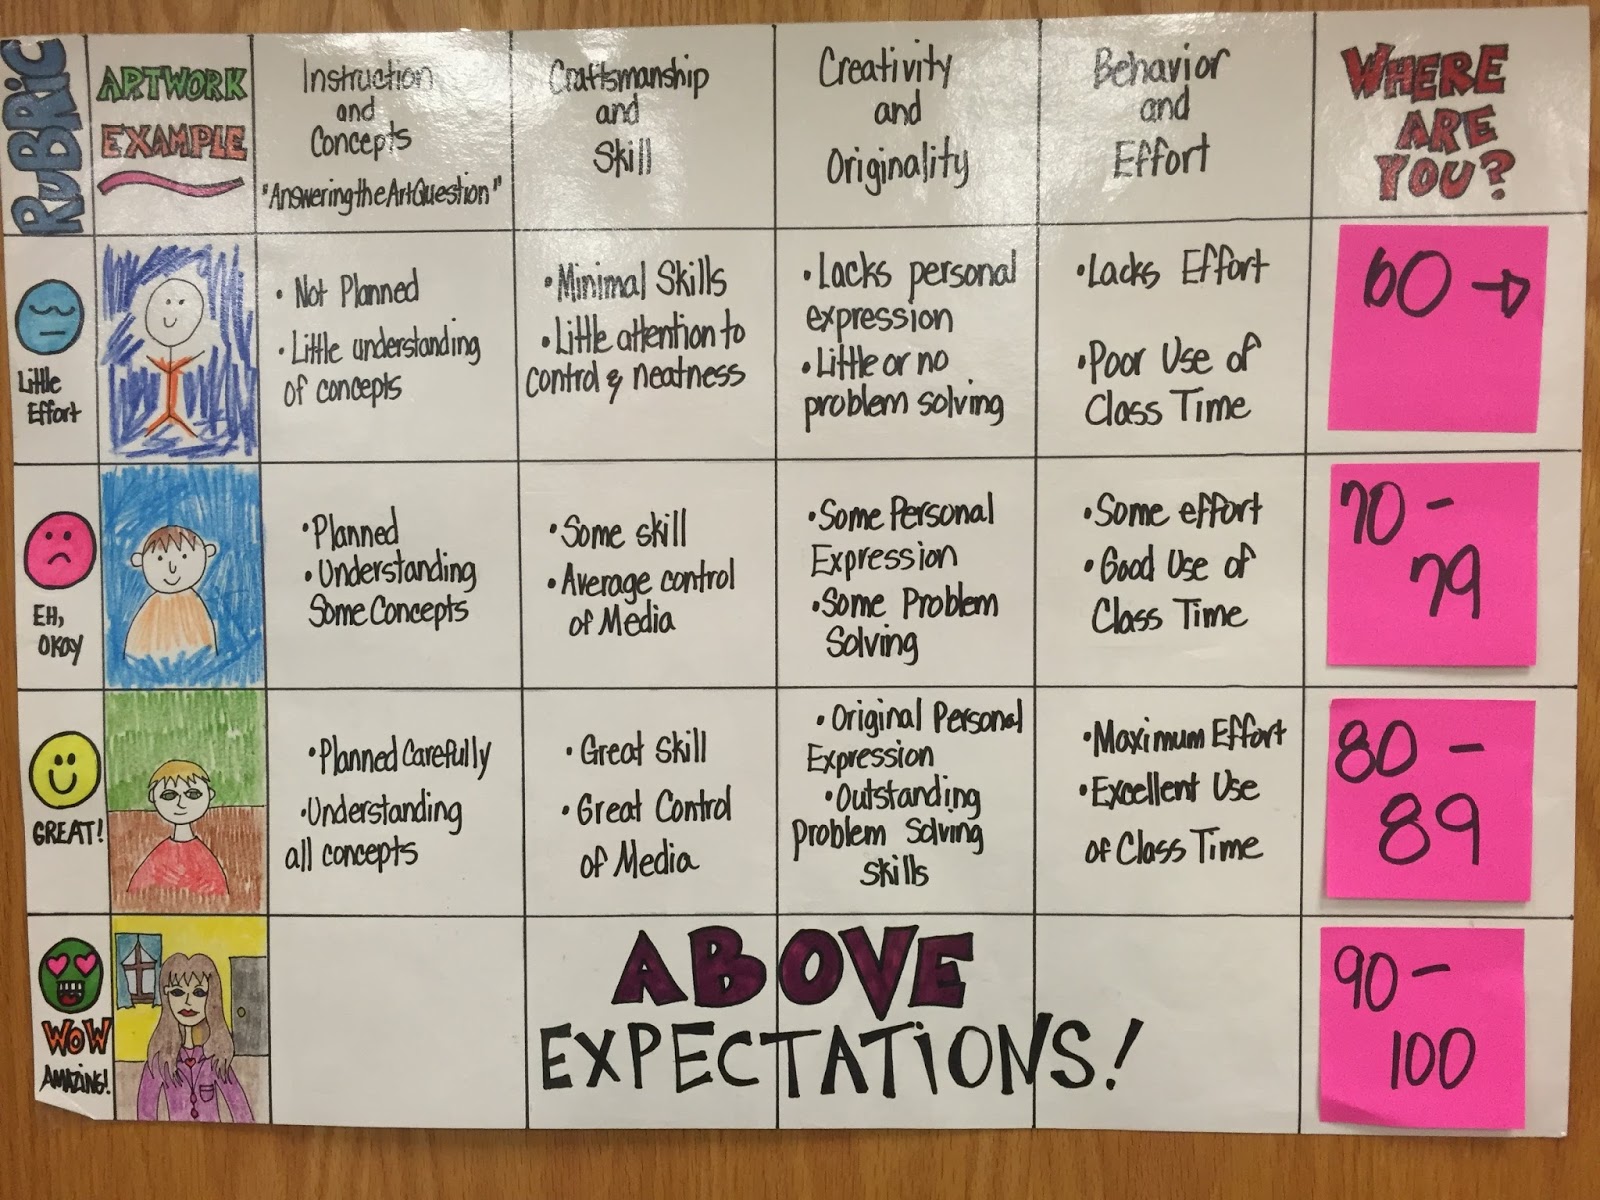 RUBRIC
ARTWORK
EXAMPLE
Instruction
and
Concepts
"Answering the Art Question"
Craftsmanship
and
Skill
Creativity
and
Originality
Behavior
and
Effort
WHERE
ARE
YOU?
Little
Effort
• Not Planned
• Little understanding
of concepts
• Minimal Skills
• Little attention to
control & neatness
• Lacks personal
expression
• Little or no
problem solving
• Lacks Effort
• Poor Use of
Class Time
60 →
EH,
OKAY
• Planned
• Understanding
Some Concepts
• Some skill
• Average control
of Media
• Some Personal
Expression
• Some Problem
Solving
• Some effort
• Good Use of
Class Time
70 -
79
GREAT!
• Planned Carefully
• Understanding
all concepts
• Great Skill
• Great Control
of Media
• Original Personal
Expression
• Outstanding
Problem Solving
Skills
• Maximum Effort
• Excellent Use
of Class Time
80 -
89
WOW
AMAZING!
ABOVE
EXPECTATIONS!
90 -
100